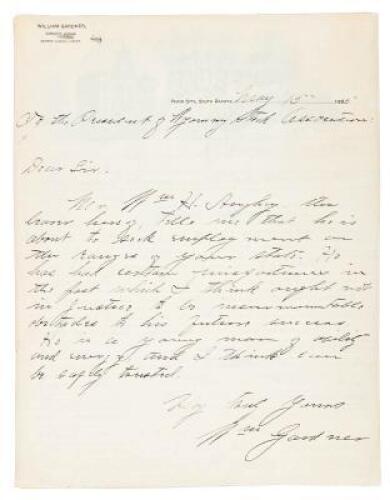 WILLIAM GARDNER,
Rapid City, South Dakota, May 15th 1895
To the President of Wyoming Stock Association:
Dear Sir.
Mr. Wm H. the
hereof, tells me that he is
about to seek employment on
the Ranges of your state. He
has had certain misfortunes in
the past which I think ought not
in justice to be insurmountable
obstacles to his future success
He is a young man of ability
and energy and I think can
be safely trusted.
Very Truly Yours
Wm Gardner